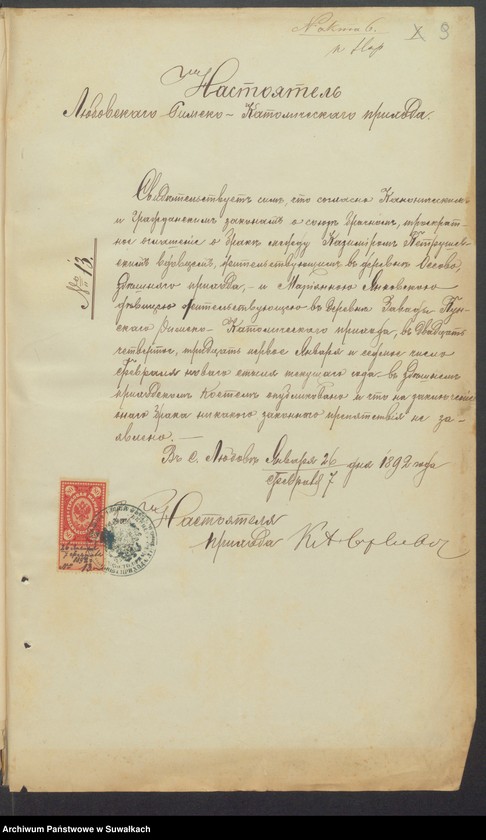 № акта 6.
X 3
Настоятель
Любовскаго Римско-Католическаго прихода.
№ 13.
Свидѣтельствуетъ симъ, что согласно Каноническимъ
и Гражданскимъ законамъ о союзѣ брачномъ, троекрат-
ное оглашеніе о бракѣ между Казимиромъ Петрушев-
скимъ вдовцемъ, жительствующимъ въ деревнѣ
здѣшняго прихода, и Марianною Янковскою
дѣвицею жительствующею въ деревнѣ Пун-
скаго Римско-Католическаго прихода, въ двадцать
четвертое, тридцать первое Января и седьмое число
Февраля новаго стиля текущаго года въ здѣшнемъ
приходскомъ Костелѣ опубликовано и что на заключеніе
онаго брака никакого законнаго препятствія не за-
явлено. —
Въ с. Любовъ Января 26 дня 1892 года
Февраля 7
Настоятеля
прихода
Archiwum Państwowe w Suwałkach